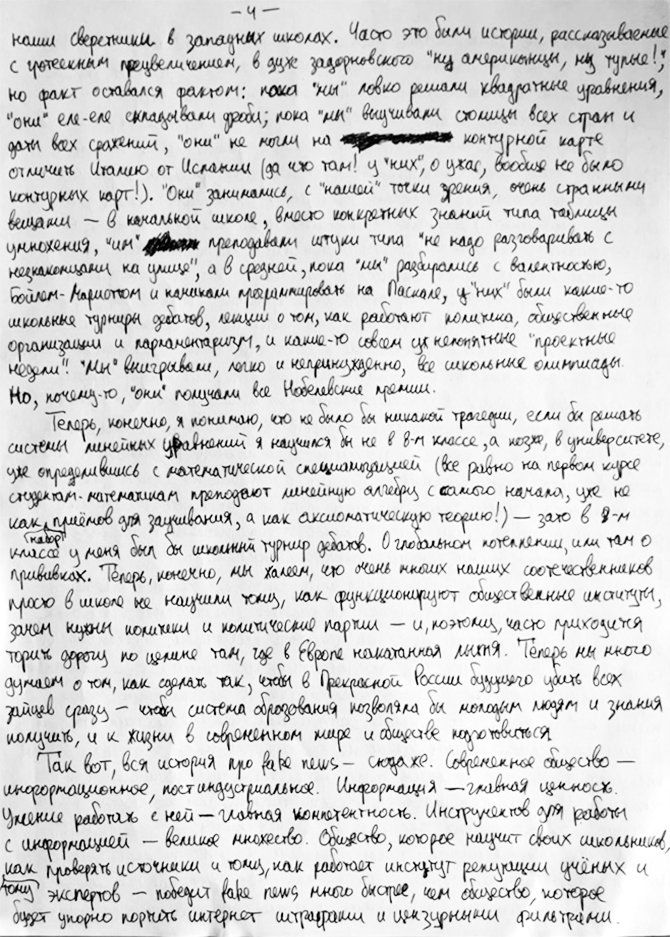 — 4 —
наши сверстники в западных школах. Часто это были истории, рассказываемые
с гротескным преувеличением, в духе задорновского "ну американцы, ну тупые!",
но факт оставался фактом: пока "мы" ловко решали квадратные уравнения,
"они" еле-еле складывали дроби; пока "мы" выучивали столицы всех стран и
даты всех сражений, "они" не могли на контурной карте
отличить Италию от Испании (да что там! у "них", о ужас, вообще не было
контурных карт!). "Они" занимались, с "нашей" точки зрения, очень странными
вещами — в начальной школе, вместо конкретных знаний типа таблицы
умножения, "им" преподавали штуки типа "не надо разговаривать с
незнакомцами на улице", а в средней, пока "мы" разбирались с валентностью,
Бойлем-Мариоттом и начинали программировать на Паскале, у "них" были какие-то
школьные турниры дебатов, лекции о том, как работают политика, общественные
организации и парламентаризм, и какие-то совсем уж непонятные "проектные
недели". "Мы" выигрывали, легко и непринужденно, все школьные олимпиады.
Но, почему-то, "они" получали все Нобелевские премии.
Теперь, конечно, я понимаю, что не было бы никакой трагедии, если бы решать
системы линейных уравнений я научился бы не в 8-м классе, а позже, в университете,
уже определившись с математической специализацией (все равно на первом курсе
студентам-математикам преподают линейную алгебру с самого начала, уже не
как набор приёмов для заучивания, а как аксиоматическую теорию!) — зато в 8-м
классе у меня был бы школьный турнир дебатов. О глобальном потеплении, или там о
прививках. Теперь, конечно, мы жалеем, что очень многих наших соотечественников
просто в школе не научили тому, как функционируют общественные институты,
зачем нужны политики и политические партии — и, поэтому, часто приходится
торить дорогу по целине там, где в Европе накатанная лыжня. Теперь мы много
думаем о том, как сделать так, чтобы в Прекрасной России будущего убить всех
зайцев сразу — чтобы система образования позволяла бы молодым людям и знания
получить, и к жизни в современном мире и обществе подготовиться
Так вот, вся история про fake news — сюда же. Современное общество —
информационное, постиндустриальное. Информация — главная ценность.
Умение работать с ней — главная компетентность. Инструментов для работы
с информацией — великое множество. Общество, которое научит своих школьников,
как проверять источники и тому, как работает институт репутации учёных и
тому экспертов — победит fake news много быстрее, чем общество, которое
будет упорно портить интернет штрафами и цензурными фильтрами.